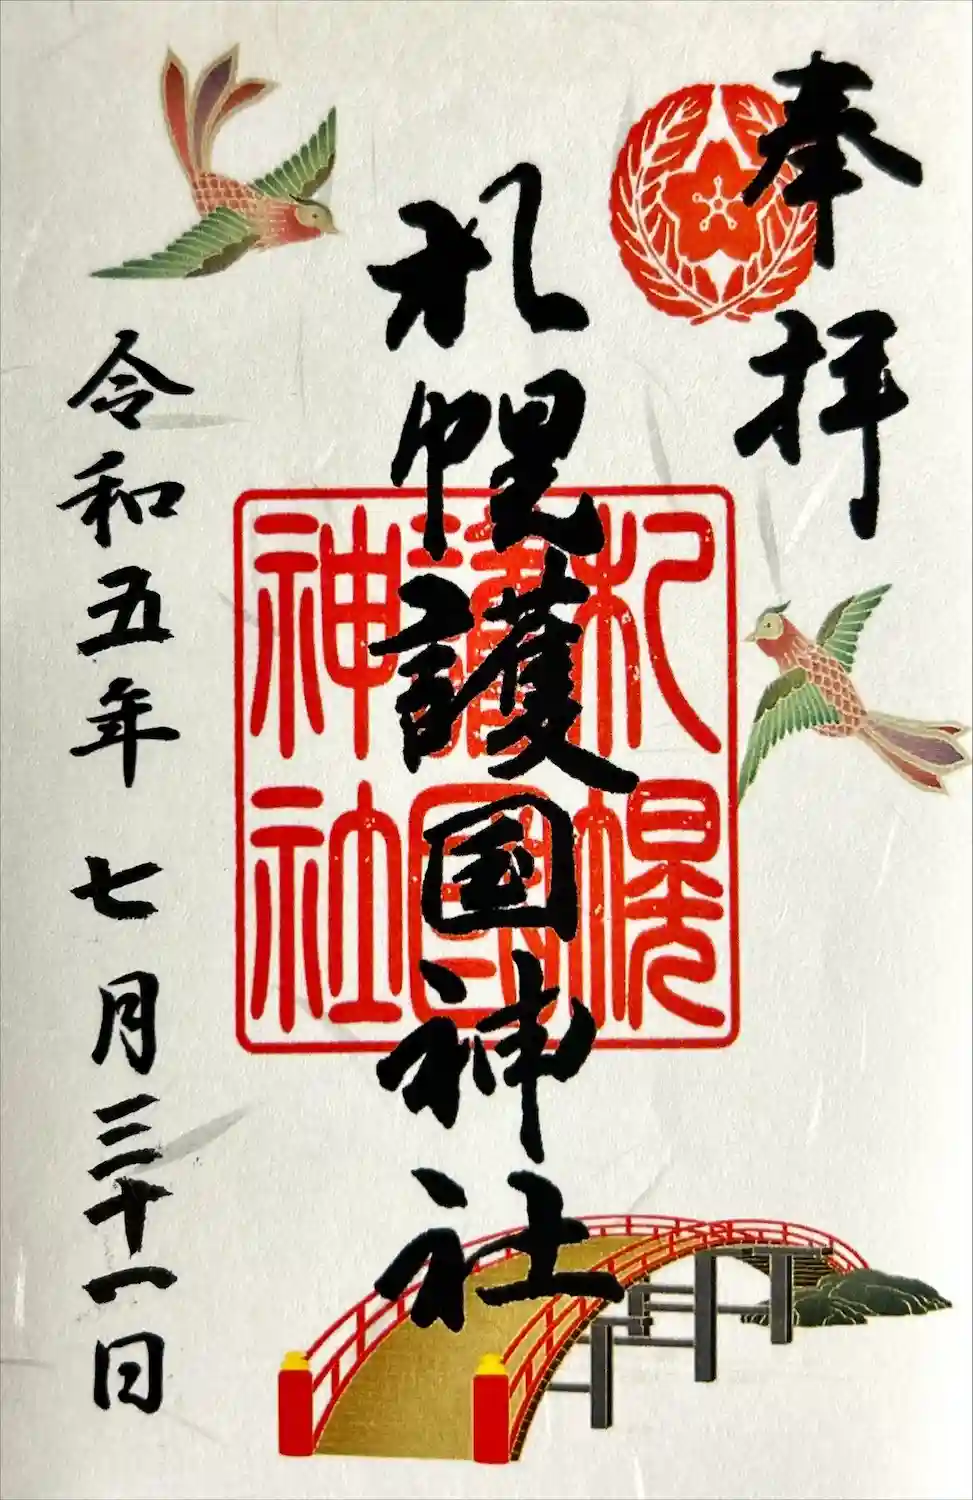 奉拝
札幌護国神社
札幌
護國
神社
令和五年 七月三十一日